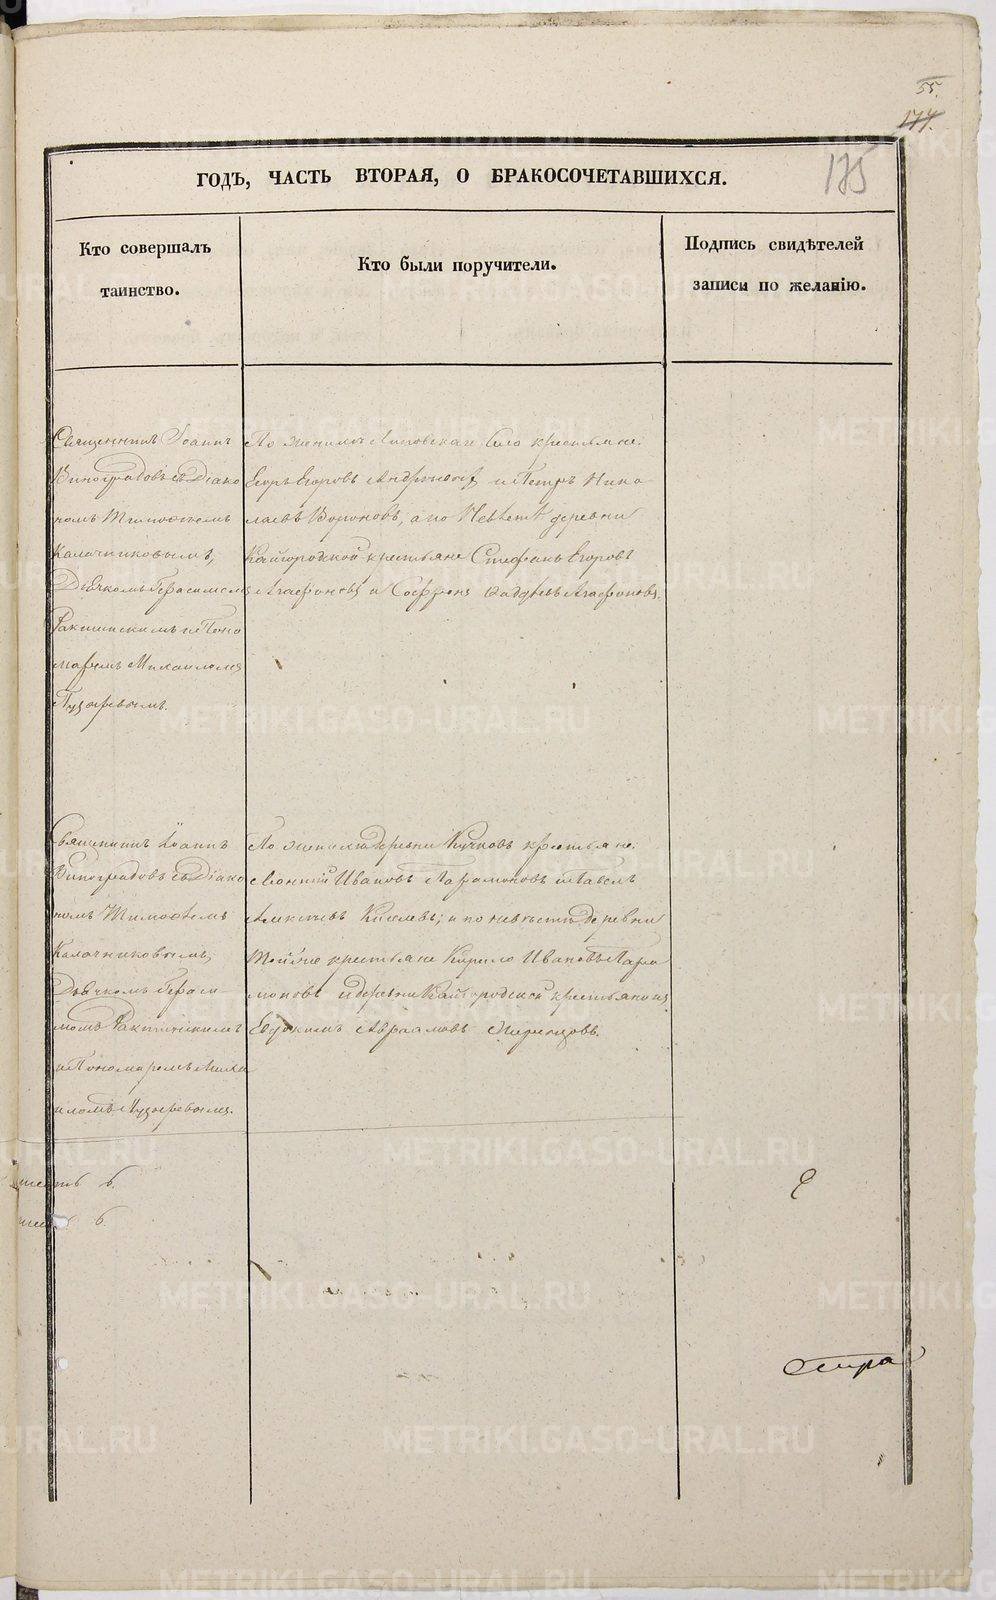 55.
174.
175
ГОДЪ, ЧАСТЬ ВТОРАЯ, О БРАКОСОЧЕТАВШИХСЯ.
Кто совершалъ
таинство.
Кто были поручители.
Подпись свидѣтелей
записи по желанію.
Священникъ Іоаннъ
Виноградовъ съ Діако
номъ Тимоѳеемъ
Калачниковымъ,
Дьячкомъ Герасимомъ
и Поно
маремъ Михаиломъ
По женихѣ Липовскаго села крестьяне
Егоръ Егоровъ и Петръ Нико
лаевъ Вороновъ, а по невѣстѣ деревни
Кайгородской крестьяне Стефанъ Егоровъ
Агафоновъ и Софронъ Агафоновъ.
Священникъ Іоаннъ
Виноградовъ съ Діако
номъ Тимоѳеемъ
Калачниковымъ,
Дьячкомъ Гераси
момъ
и Пономаремъ Миха
иломъ
По женихѣ деревни крестьяне
Иванов Парамоновъ и Павелъ
Алексѣевъ Киселевъ; и по невѣстѣ деревни
крестьяне Кирило Ивановъ Пара
моновъ и деревни Кайгородской крестьянинъ
Евдокимъ Авраамовъ
6.
6.
METRIKI.GASO-URAL.RU